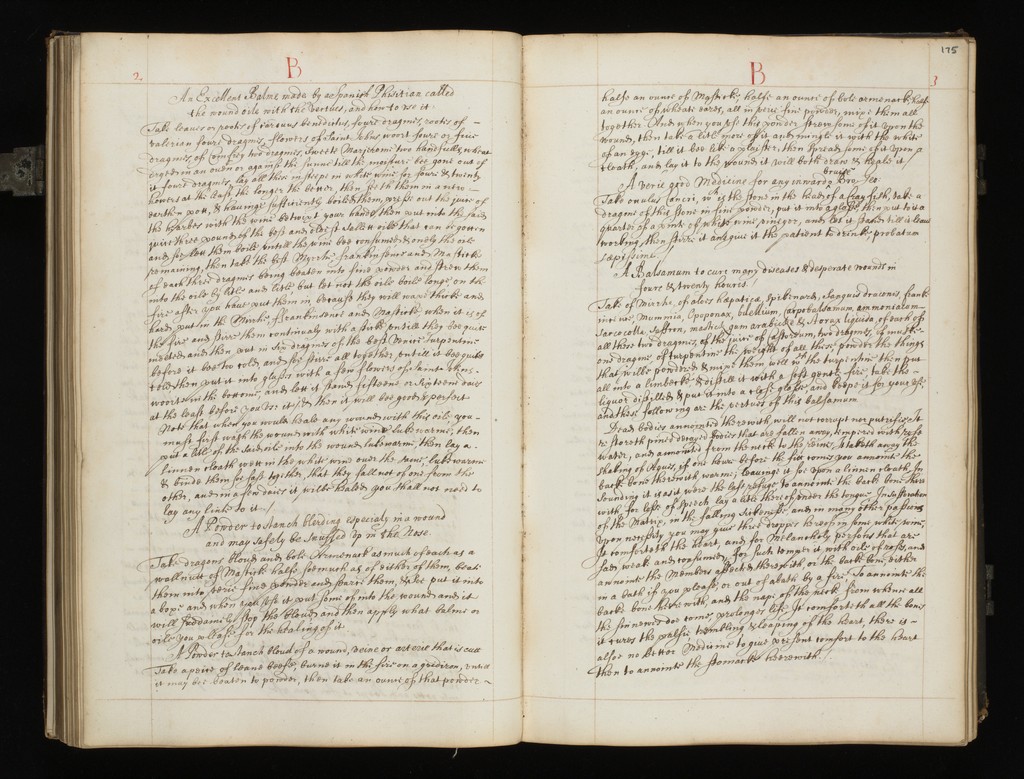 2
B
An Excellent Balme made by a Spanish Phisitian called
the wound oile with the vertues, and how to use it
Take leaves or roots of Carduus benedictus, foure dragmes, roots of
valerian foure dragmes, flowers of Saint Johns wort foure or five
dragmes, of Comfrey two dragmes, Sweete Marjerome two handfulls, wheat
dryed in an oven or against the sunne till the moisture bee gone out of
it foure dragmes, lay all these in steepe in white wine for foure & twenty
howers at the least, the longer the better, then seeth them in a new
earthen pott, & haveinge sufficiently boiled them, press out the juice of
the hearbes with the wine betwixt your hands, then put into the said
juice three pound of the best and oldest Sallett oile that can be gotten
and soe lett them boile untill the wine bee consumed & onely the oile
remaining, then take the best Myrrhe, frankinsence and Masticke
of each three dragmes being beaten into fine powder and strew them
into the oile by litle and litle but let not the oile boile longe on the
fire after you have put them in because they will waxe thicke and
hard, put in the Mirrhe, Frankinsence and Masticke when it is of
the fire and stirre them continually with a sticke untill they bee quite
melted and then put in six dragmes of the best Venice Turpentine
before it bee too cold, and soe stirre all together, untill it bee quite
cold then put it into glasses with a few flowers of Saint Johns-
woort in the bottome, and lett it stand fifteene or sixteene daies
at the least before you use it, and then it will bee good & perfect
Note that when you would heale any wound with this oile you
must first wash the wound with white wine lukewarme, then
put a litle of the said oile into the wound lukewarme, then lay a
linnen cloath wett in the white wine over the same lukewarme
& binde them soe fast together, that they fall not of one from the
other, and in a few daies it wilbe healed, you shall not need to
lay any linte to it
A Powder to stanch bleeding especialy in a wound
and may safely be snuffed up in the Nose
Take dragons bloud and bole Armenack as much of each as a
wallnutt, of Masticke halfe soe much as of either of them, beate
them into verie fine powder and searce them, & soe put it into
a boxe and when you use it put some of into the wound and it
will soddainely stop the bloud, and then apply what balme or
oile you please for the healing of it
A Powder to stanch bloud of a wound, veine or arterie that is cutt
Take a peice of leane beefe, burne it in the fire on a grediron, untill
it may bee beaten to powder, then take an ounce of that powder
175
B
3
halfe an ounce of Mastick, halfe an ounce of bole armenack, halfe
an ounce of wheate eares, all in verie fine powder, mixe them all
together. And when you use this powder strew some of it upon the
wound, then take a litle more of it and mingle it with the white
of an egge, till it bee like a plaister, then spread some of it upon a
cloath, and lay it to the wound it will both draw & heale it
A Verie good Medicine for any inward bruise
Take oculus Cancri, wch is the stone in the head of a Crayfish, take 2
dragms of this stone in fine powder, put it into a glasse then put to it a
quarter of a pinte of white wine vineger, and let it stand till it leave
working, then stirre it and give it the patient to drink, probatum
saepissime
A Balsamum to cure many diseases & desperate wounds in
foure & twenty houres
Take of Mirrhe, of aloes hepatica, spikenard, Sanguis draconis, frank-
incense, Mummia, Opoponax, bdellium, carpobalsamum, ammoniacum
sarcocolla, Saffron, mastick, gum arabicke & Storax liquida, of each of
all these two dragmes, of the juice of Castoreum, two dragmes, of muske
one dragme, of turpentine the weight of all these, powder the things
that wilbe powdered & mixe them well wth the turpentine then put
all into a limbecke & distill it with a soft gentle fire, take the
liquor distilled & put it into a close glasse and keepe it for your use
and these following are the vertues of this balsamum
Dead bodies annointed therewith, will not corrupt nor putrifie, It
restoreth pined decayed bodies that are fallen away, tempered with rose
water, and annointed from the neck to the reines, It taketh away the
shaking of Agues, if one houre before the fitt come you annointe the
back bone therewith warme, leaving it soe upon a linnen cloath. In
Sounding it is as it were the last refuge to annointe the back bone there
with, for losse of speech lay a litle thereof under the tongue. In suffocation
of the Matrix, in the falling Sicknesse, and in many other passions
upon necessity you may give three dropps thereof in some white wine,
It comforteth the heart, and for Melancholy persons that are
sad, weak and consumed, for such temper it with oile of roses, and
annointe the Members affected therewith, or the back bone, either
in a bath if you please, or out of a bath by a fire. So annointe the
back bone therewith, and the nape of the neck from whence all
the sinnewes doe come, prolonges life. It comforteth all the bones
it cures the palsie trembling & leaping of the heart, there is
alsoe no better Medicine to give present comfort to the heart
then to annointe the stomacke therewith.